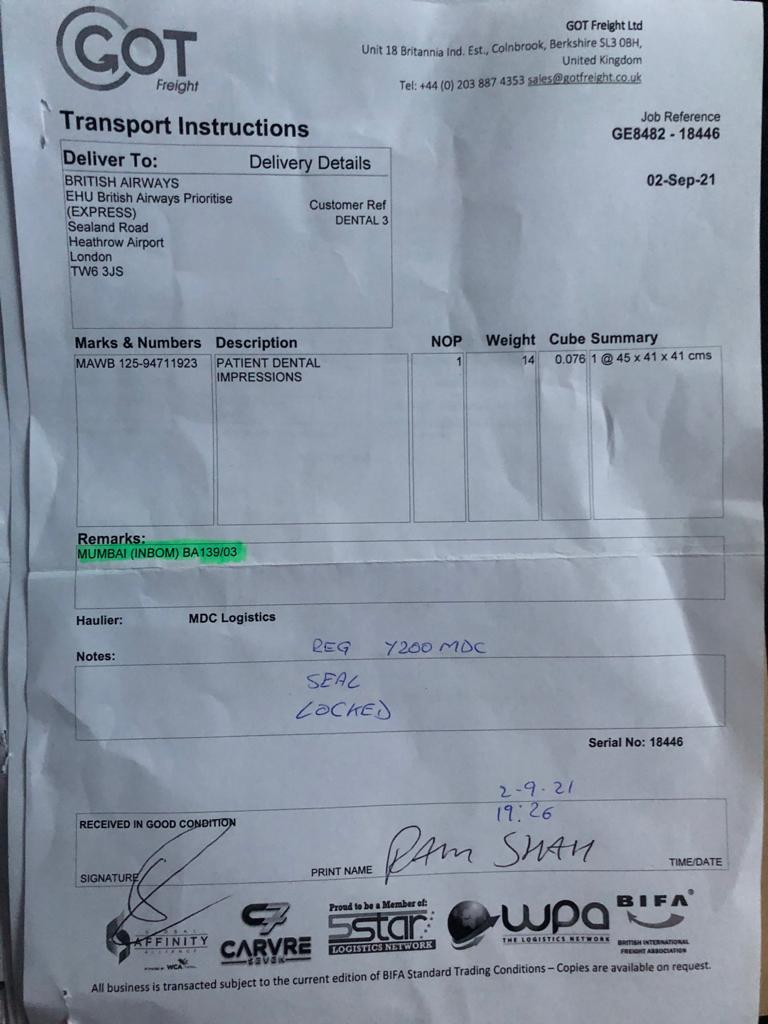 GOT
Freight
GOT Freight Ltd
Unit 18 Britannia Ind. Est., Colnbrook, Berkshire SL3 0BH,
United Kingdom
Tel: +44 (0) 203 887 4353 sales@gotfreight.co.uk
Transport Instructions
Job Reference
GE8482 - 18446
02-Sep-21
Deliver To: Delivery Details
BRITISH AIRWAYS
EHU British Airways Prioritise
(EXPRESS)
Sealand Road
Heathrow Airport
London
TW6 3JS
Customer Ref
DENTAL 3
Marks & Numbers Description NOP Weight Cube Summary
MAWB 125-94711923 PATIENT DENTAL 1 14 0.076 1 @ 45 x 41 x 41 cms
IMPRESSIONS
Remarks:
MUMBAI (INBOM) BA139/03
Haulier: MDC Logistics
Notes: REG Y200 MDC
SEAL
LOCKED
Serial No: 18446
2-9-21
19:26
RECEIVED IN GOOD CONDITION
SIGNATURE PRINT NAME RAM SHAH TIME/DATE
GLOBAL
AFFINITY
ALLIANCE
WCA
C7
CARVRE
SEVEN
Proud to be a Member of:
5star
LOGISTICS NETWORK
wpa
THE LOGISTICS NETWORK
BIFA
BRITISH INTERNATIONAL
FREIGHT ASSOCIATION
All business is transacted subject to the current edition of BIFA Standard Trading Conditions – Copies are available on request.